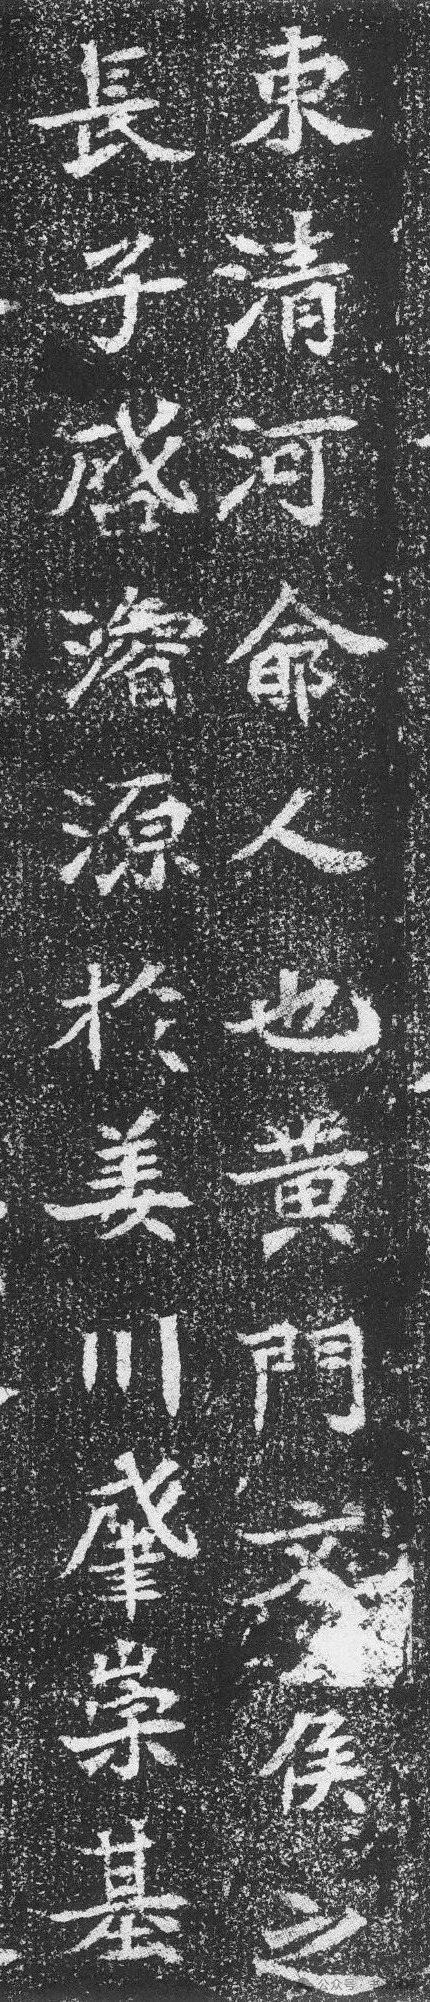 東清河鄃人也黄門文侯之
長子啓濬源於姜川肇崇基
公众号